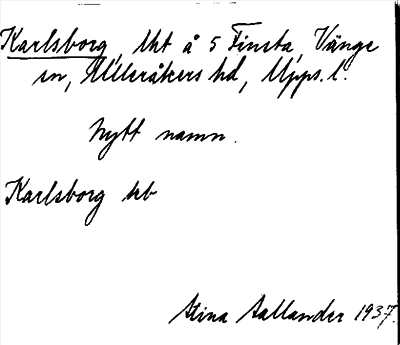 Karlsborg, lht å 5 Finsta, Vänge
sn, Ulleråkers hd, Upps. l.
Nytt namn.
Karlsborg hb
Stina Sallander 1937.